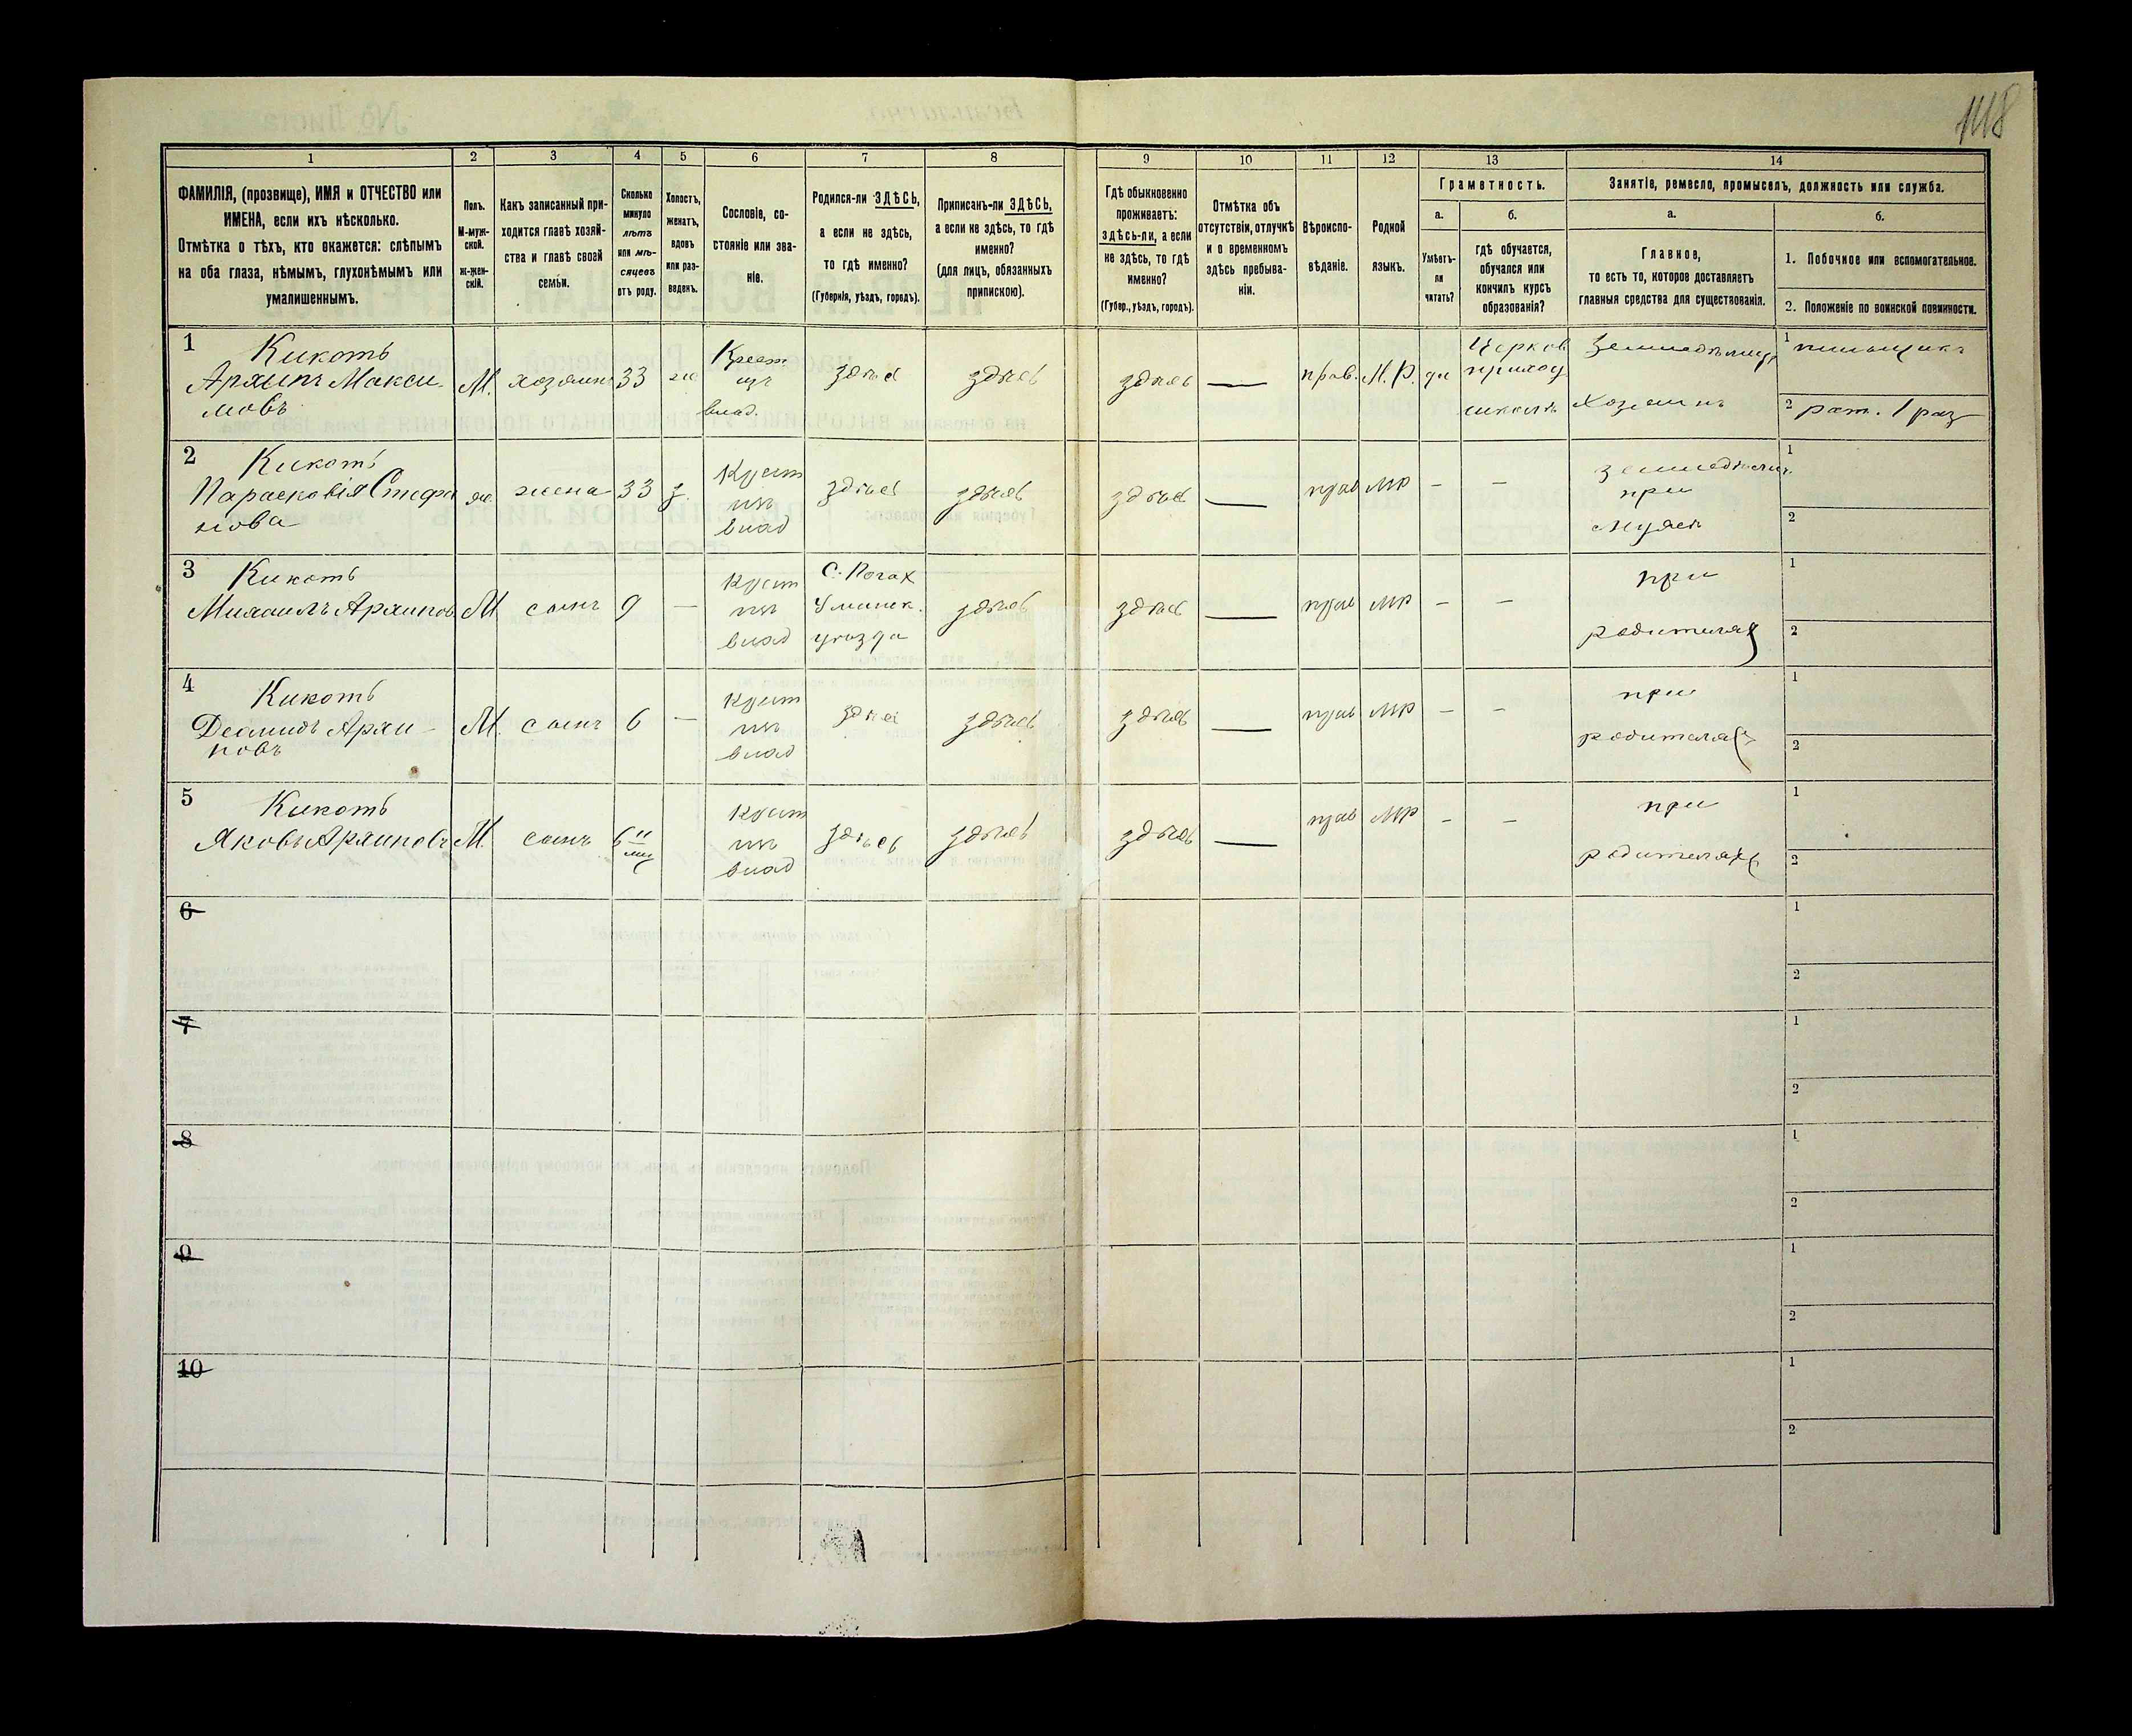 1118
1 2 3 4 5 6 7 8 9 10 11 12 13 14
ФАМИЛІЯ, (прозвище), ИМЯ и ОТЧЕСТВО или
ИМЕНА, если ихъ нѣсколько.
Отмѣтка о тѣхъ, кто окажется: слѣпымъ
на оба глаза, нѣмымъ, глухонѣмымъ или
умалишеннымъ.
Полъ.
М-муж-
ской.
Ж-жен-
скій.
Какъ записанный при-
ходится главѣ хозяй-
ства и главѣ своей
семьи.
Сколько
минуло
лѣтъ
или мѣ-
сяцевъ
отъ роду.
Холостъ,
женатъ,
вдовъ
или раз-
веденъ.
Сословіе, со-
стояніе или зва-
ніе.
Родился-ли ЗДѢСЬ,
а если не здѣсь,
то гдѣ именно?
(Губернія, уѣздъ, городъ).
Приписанъ-ли ЗДѢСЬ,
а если не здѣсь, то гдѣ
именно?
(для лицъ, обязанныхъ
припискою).
Гдѣ обыкновенно
проживаетъ:
здѣсь-ли, а если
не здѣсь, то гдѣ
именно?
(Губер., уѣздъ, городъ).
Отмѣтка объ
отсутствіи, отлучкѣ
и о временномъ
здѣсь пребыва-
ніи.
Вѣроиспо-
вѣданіе.
Родной
языкъ.
Грамотность.
а.
Умѣетъ-
ли
читать?
б.
гдѣ обучается,
обучался или
кончилъ курсъ
образованія?
Занятіе, ремесло, промыселъ, должность или служба.
а.
Главное,
то есть то, которое доставляетъ
главныя средства для существованія.
б.
1. Побочное или вспомогательное.
2. Положеніе по воинской повинности.
1
Кикоть
Архипъ Макси-
мовъ
М. хозяинъ 33 же
Крест
изъ
влад.
здѣсь здѣсь здѣсь — прав. М. Р. да
Церков
приход
школѣ
Земледѣлецъ
Хозяинъ
1 пильщикъ
2 рат. 1 раз
2
Кикоть
Парасковія Стефа
нова
же жена 33 з.
Крест
изъ
влад
здѣсь здѣсь здѣсь — прав МР — —
земледѣлич.
при
мужѣ
1
2
3
Кикоть
Михаилъ Архипов
М сынъ 9 —
Крест
изъ
влад
С. Рогах
Уманск.
уѣзда
здѣсь здѣсь — прав МР — —
при
родителях
1
2
4
Кикоть
Деомидъ Архи-
повъ
М. сынъ 6 —
Крест
изъ
влад
здѣсь здѣсь здѣсь — прав МР — —
при
родителях
1
2
5
Кикоть
Яковъ Архиповъ
М. сынъ 6 мц
Крест
изъ
влад
здѣсь здѣсь здѣсь — прав МР — —
при
родителях
1
2
6
1
2
7
1
2
8
1
2
9
1
2
10
1
2